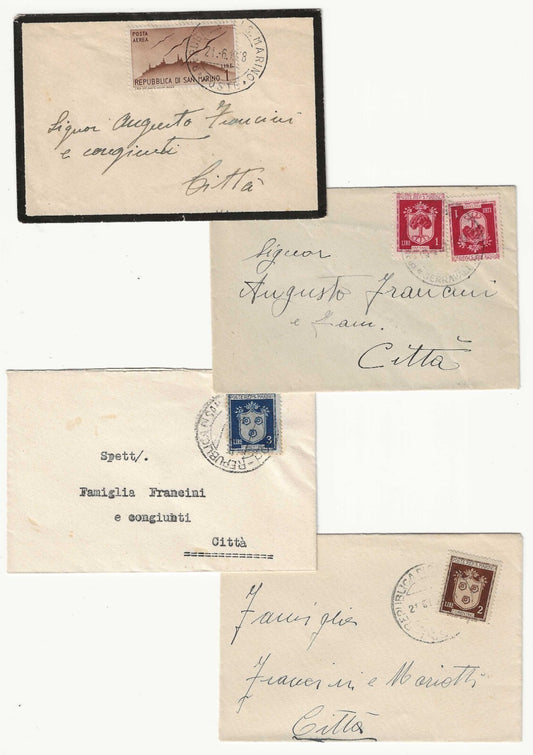 POSTA
AEREA
LIRE
1
REPUBBLICA DI SAN MARINO
21.-6
S. MARINO
POSTE
Signor Augusto Francini
e congiunti
Città
LIRE 1
1
Signor
Augusto Francini
e Fam.
Città
LIRE 3
REPUBBLICA DI
Spett/.
Famiglia Francini
e congiunti
Città
LIRE 2
REPUBBLICA DI
21
Famiglie
Francini e Mariotti
Città